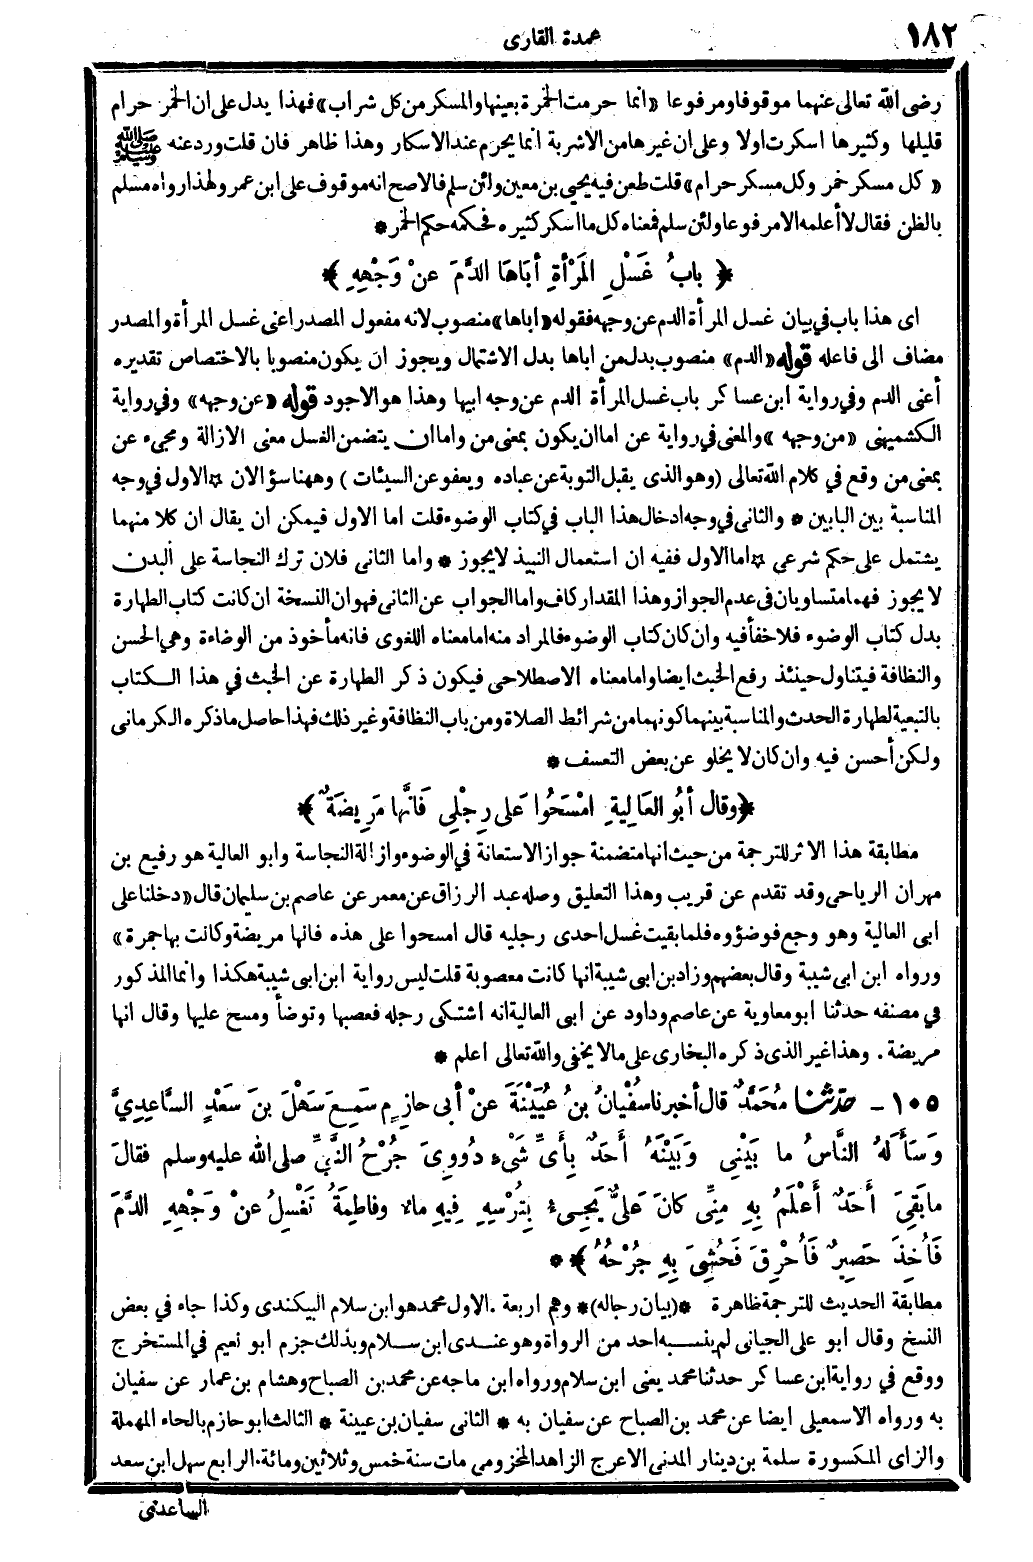 ١٨٢
عمدة القارى
رضى الله تعالى عنهما موقوفا ومرفوعا «انما حرمت الخمرة بعينها والمسكر من كل شراب» فهذا يدل على ان الخمر حرام
قليلها وكثيرها اسكرت اولا وعلى ان غيرها من الاشربة انما يحرم عند الاسكار وهذا ظاهر فان قلت ورد عنه ﷺ
«كل مسكر خمر وكل مسكر حرام» قلت طعن فيه يحيى بن معين ولئن سلم فالاصح انه موقوف على ابن عمر ولهذا رواه مسلم
بالظن فقال لا أعلمه الا مرفوعا ولئن سلم فمعناه كل ما اسكر كثيره فحكمه حكم الخمر *
﴿ بابُ غَسْلِ المَرْأَةِ أبَاهَا الدَّمَ عنْ وَجْهِهِ ﴾
اى هذا باب فى بيان غسل المرأة الدم عن وجهه فقوله «اباها» منصوب لانه مفعول المصدر اعنى غسل المرأة والمصدر
مضاف الى فاعله قوله «الدم» منصوب بدل من اباها بدل الاشتمال ويجوز ان يكون منصوبا بالاختصاص تقديره
أعنى الدم وفى رواية ابن عساكر باب غسل المرأة الدم عن وجه ابيها وهذا هو الاجود قوله «عن وجهه» وفى رواية
الكشميهنى «من وجهه» والمعنى فى رواية عن اما ان يكون بمعنى من واما ان يتضمن الغسل معنى الازالة ومجىء عن
بمعنى من وقع فى كلام الله تعالى (وهو الذى يقبل التوبة عن عباده ويعفو عن السيئات) وههنا سؤالان * الاول فى وجه
المناسبة بين البابين * والثانى فى وجه ادخال هذا الباب فى كتاب الوضوء قلت اما الاول فيمكن ان يقال ان كلا منهما
يشتمل على حكم شرعى * اما الاول ففيه ان استعمال النبيذ لا يجوز * واما الثانى فلان ترك النجاسة على البدن
لا يجوز فهما متساويان فى عدم الجواز وهذا المقدار كاف واما الجواب عن الثانى فهو ان النسخة ان كانت كتاب الطهارة
بدل كتاب الوضوء فلا خفأ فيه وان كان كتاب الوضوء فالمراد منه اما معناه اللغوى فانه مأخوذ من الوضاءة وهى الحسن
والنظافة فيتناول حينئذ رفع الخبث ايضا واما معناه الاصطلاحى فيكون ذكر الطهارة عن الخبث فى هذا الكتاب
بالتبعية لطهارة الحدث والمناسبة بينهما كونهما من شرائط الصلاة ومن باب النظافة وغير ذلك فهذا حاصل ما ذكره الكرمانى
ولكن أحسن فيه وان كان لا يخلو عن بعض التعسف *
﴿وقال أبُو العَالِيةِ امْسَحُوا عَلَى رِجْلِى فَانَّهَا مَرِيضَةٌ﴾
مطابقة هذا الاثر للترجمة من حيث انها متضمنة جواز الاستعانة فى الوضوء وازالة النجاسة وابو العالية هو رفيع بن
مهران الرياحى وقد تقدم عن قريب وهذا التعليق وصله عبد الرزاق عن معمر عن عاصم بن سليمان قال «دخلنا على
ابى العالية وهو وجع فوضؤوه فلما بقيت غسل احدى رجليه قال امسحوا على هذه فانها مريضة وكانت بها جمرة»
ورواه ابن ابى شيبة وقال بعضهم وزاد بن ابى شيبة انها كانت معصوبة قلت ليس رواية ابن ابى شيبة هكذا وانما المذكور
فى مصنفه حدثنا ابو معاوية عن عاصم وداود عن ابى العالية انه اشتكى رجله فعصبها وتوضأ ومسح عليها وقال انها
مريضة . وهذا غير الذى ذكره البخارى على ما لا يخفى والله تعالى اعلم *
١٠٥ ـ حَدَّثَنَا مُحَمَّدٌ قال أخبرنا سُفْيَانُ بنُ عُيَيْنَةَ عنْ أبى حازِمٍ سَمِعَ سَهْلَ بنَ سَعْدٍ السَّاعِدِيَّ
وَسَأَلَهُ النَّاسُ ما بَيْنِى وَبَيْنَهُ أحَدٌ بِأَىِّ شَىْءٍ دُووِىَ جُرْحُ النَّبِيِّ صلى الله عليه وسلم فقالَ
مابَقِىَ أَحَدٌ أَعْلَمُ بِهِ مِنِّى كانَ عَلىٌّ يَجِىءُ بِتُرْسِهِ فِيهِ ماءٌ وفاطِمَةُ تَغْسِلُ عنْ وَجْهِهِ الدَّمَ
فَأُخِذَ حَصِيرٌ فَأُحْرِقَ فَحُشِىَ بِهِ جُرْحُهُ ﴾ * *
مطابقة الحديث للترجمة ظاهرة *(بيان رجاله)* وهم اربعة . الاول محمد هو ابن سلام البيكندى وكذا جاء فى بعض
النسخ وقال ابو على الجيانى لم ينسبه احد من الرواة وهو عندى ابن سلام وبذلك جزم ابو نعيم فى المستخرج
ووقع فى رواية ابن عساكر حدثنا محمد يعنى ابن سلام ورواه ابن ماجه عن محمد بن الصباح وهشام بن عمار عن سفيان
به ورواه الاسمعيلى ايضا عن محمد بن الصباح عن سفيان به * الثانى سفيان بن عيينة * الثالث ابو حازم بالحاء المهملة
والزاى المكسورة سلمة بن دينار المدنى الاعرج الزاهد المخزومى مات سنة خمس وثلاثين ومائة. الرابع سهل ابن سعد
الساعدى